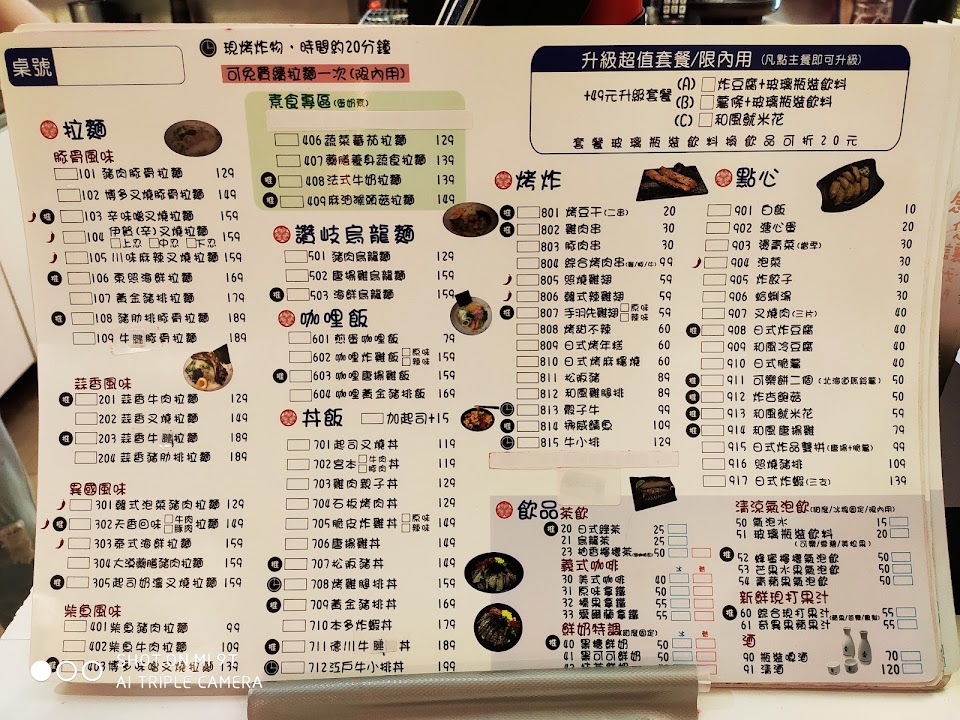 桌號
現烤炸物，時間約20分鐘
可免費續拉麵一次(限內用)
升級超值套餐/限內用 (凡點主餐即可升級)
+49元升級套餐
(A) 炸豆腐+玻璃瓶裝飲料
(B) 薯條+玻璃瓶裝飲料
(C) 和風魷米花
套餐玻璃瓶裝飲料換飲品可折20元
拉麵
豚骨風味
101 豬肉豚骨拉麵 129
102 博多叉燒豚骨拉麵 149
推 103 辛味噌叉燒拉麵 159
104 伊賀(辛)叉燒拉麵 159
上忍 中忍 下忍
105 川味麻辣叉燒拉麵 159
推 106 東照海鮮拉麵 169
107 黃金豬排拉麵 179
推 108 豬肋排豚骨拉麵 189
109 牛 豚骨拉麵 189
蒜香風味
推 201 蒜香牛肉拉麵 129
202 蒜香叉燒拉麵 149
推 203 蒜香牛 拉麵 189
204 蒜香豬肋排拉麵 189
異國風味
301 韓式泡菜豬肉拉麵 129
推 302 天香回味 牛肉 豚肉 拉麵 149
303 泰式海鮮拉麵 159
304 大漠藥膳豬肉拉麵 159
推 305 起司奶濃叉燒拉麵 159
柴魚風味
401 柴魚豬肉拉麵 99
402 柴魚牛肉拉麵 109
403 博多味噌叉燒拉麵 139
素食專區(蛋奶素)
406 蔬菜蕃茄拉麵 129
407 藥膳養身蔬食拉麵 139
推 408 法式牛奶拉麵 139
推 409 麻油猴頭菇拉麵 149
讚岐烏龍麵
501 豬肉烏龍麵 129
502 唐揚雞烏龍麵 159
推 503 海鮮烏龍麵 159
咖哩飯
601 煎蛋咖哩飯 79
602 咖哩炸雞飯 原味 辣味 159
推 603 咖哩唐揚雞飯 159
604 咖哩黃金豬排飯 169
丼飯 加起司+15
701 起司叉燒丼 119
702 宮本 牛肉 豚肉 丼 119
703 雞肉親子丼 129
704 石板烤肉丼 129
705 脆皮炸雞丼 原味 辣味 149
706 唐揚雞丼 149
推 707 松阪豬丼 149
708 烤雞腿排丼 159
推 709 黃金豬排丼 169
710 本多炸蝦丼 179
推 711 德川牛 丼 189
712 江戶牛小排丼 199
烤炸
推 801 烤豆干(二串) 20
推 802 雞肉串 30
803 豚肉串 30
804 綜合烤肉串(雞/豚/牛) 99
805 照燒雞翅 59
806 韓式辣雞翅 59
推 807 手羽先雞翅 原味 辣味 59
808 烤甜不辣 60
809 日式烤年糕 60
810 日式烤麻糬燒 60
811 松阪豬 89
812 和風雞腿排 89
813 骰子牛 99
推 814 挪威鯖魚 109
815 牛小排 129
點心
901 白飯 10
902 溏心蛋 20
903 燙青菜(當季) 30
904 泡菜 30
905 炸餃子 30
906 蛤蜊湯 30
907 叉燒肉(三片) 40
推 908 日式炸豆腐 40
909 和風冷豆腐 40
910 日式脆薯 40
推 911 可樂餅二個 (北海道馬鈴薯) 50
推 912 炸杏鮑菇 50
推 913 和風魷米花 59
推 914 和風唐揚雞 79
915 日式炸品雙拼(唐揚+脆薯) 99
916 照燒豬排 109
917 日式炸蝦(三支) 139
飲品
茶飲
推 20 日式綠茶 25
21 烏龍茶 25
23 柚香檸檬茶 50
義式咖啡 冰 熱
30 美式咖啡 40
31 原味拿鐵 50
32 榛果拿鐵 55
33 愛爾蘭拿鐵 55
鮮奶特調(甜度固定) 冰 熱
推 40 黑糖鮮奶 50
41 黑可可鮮奶 50
42 抹茶鮮奶 50
清涼氣泡飲(甜度/冰塊固定/限內用)
50 氣泡水 15
51 玻璃瓶裝飲料 20
(可樂/雪碧/芬達)
推 52 蜂蜜檸檬氣泡飲 50
53 芒果水果氣泡飲 50
54 青蘋果氣泡飲 50
新鮮現打果汁
推 60 綜合現打果汁 55
61 奇異果蘋果汁 55
酒
90 瓶裝啤酒 70
91 清酒 120
SHOT ON MI 9T
AI TRIPLE CAMERA